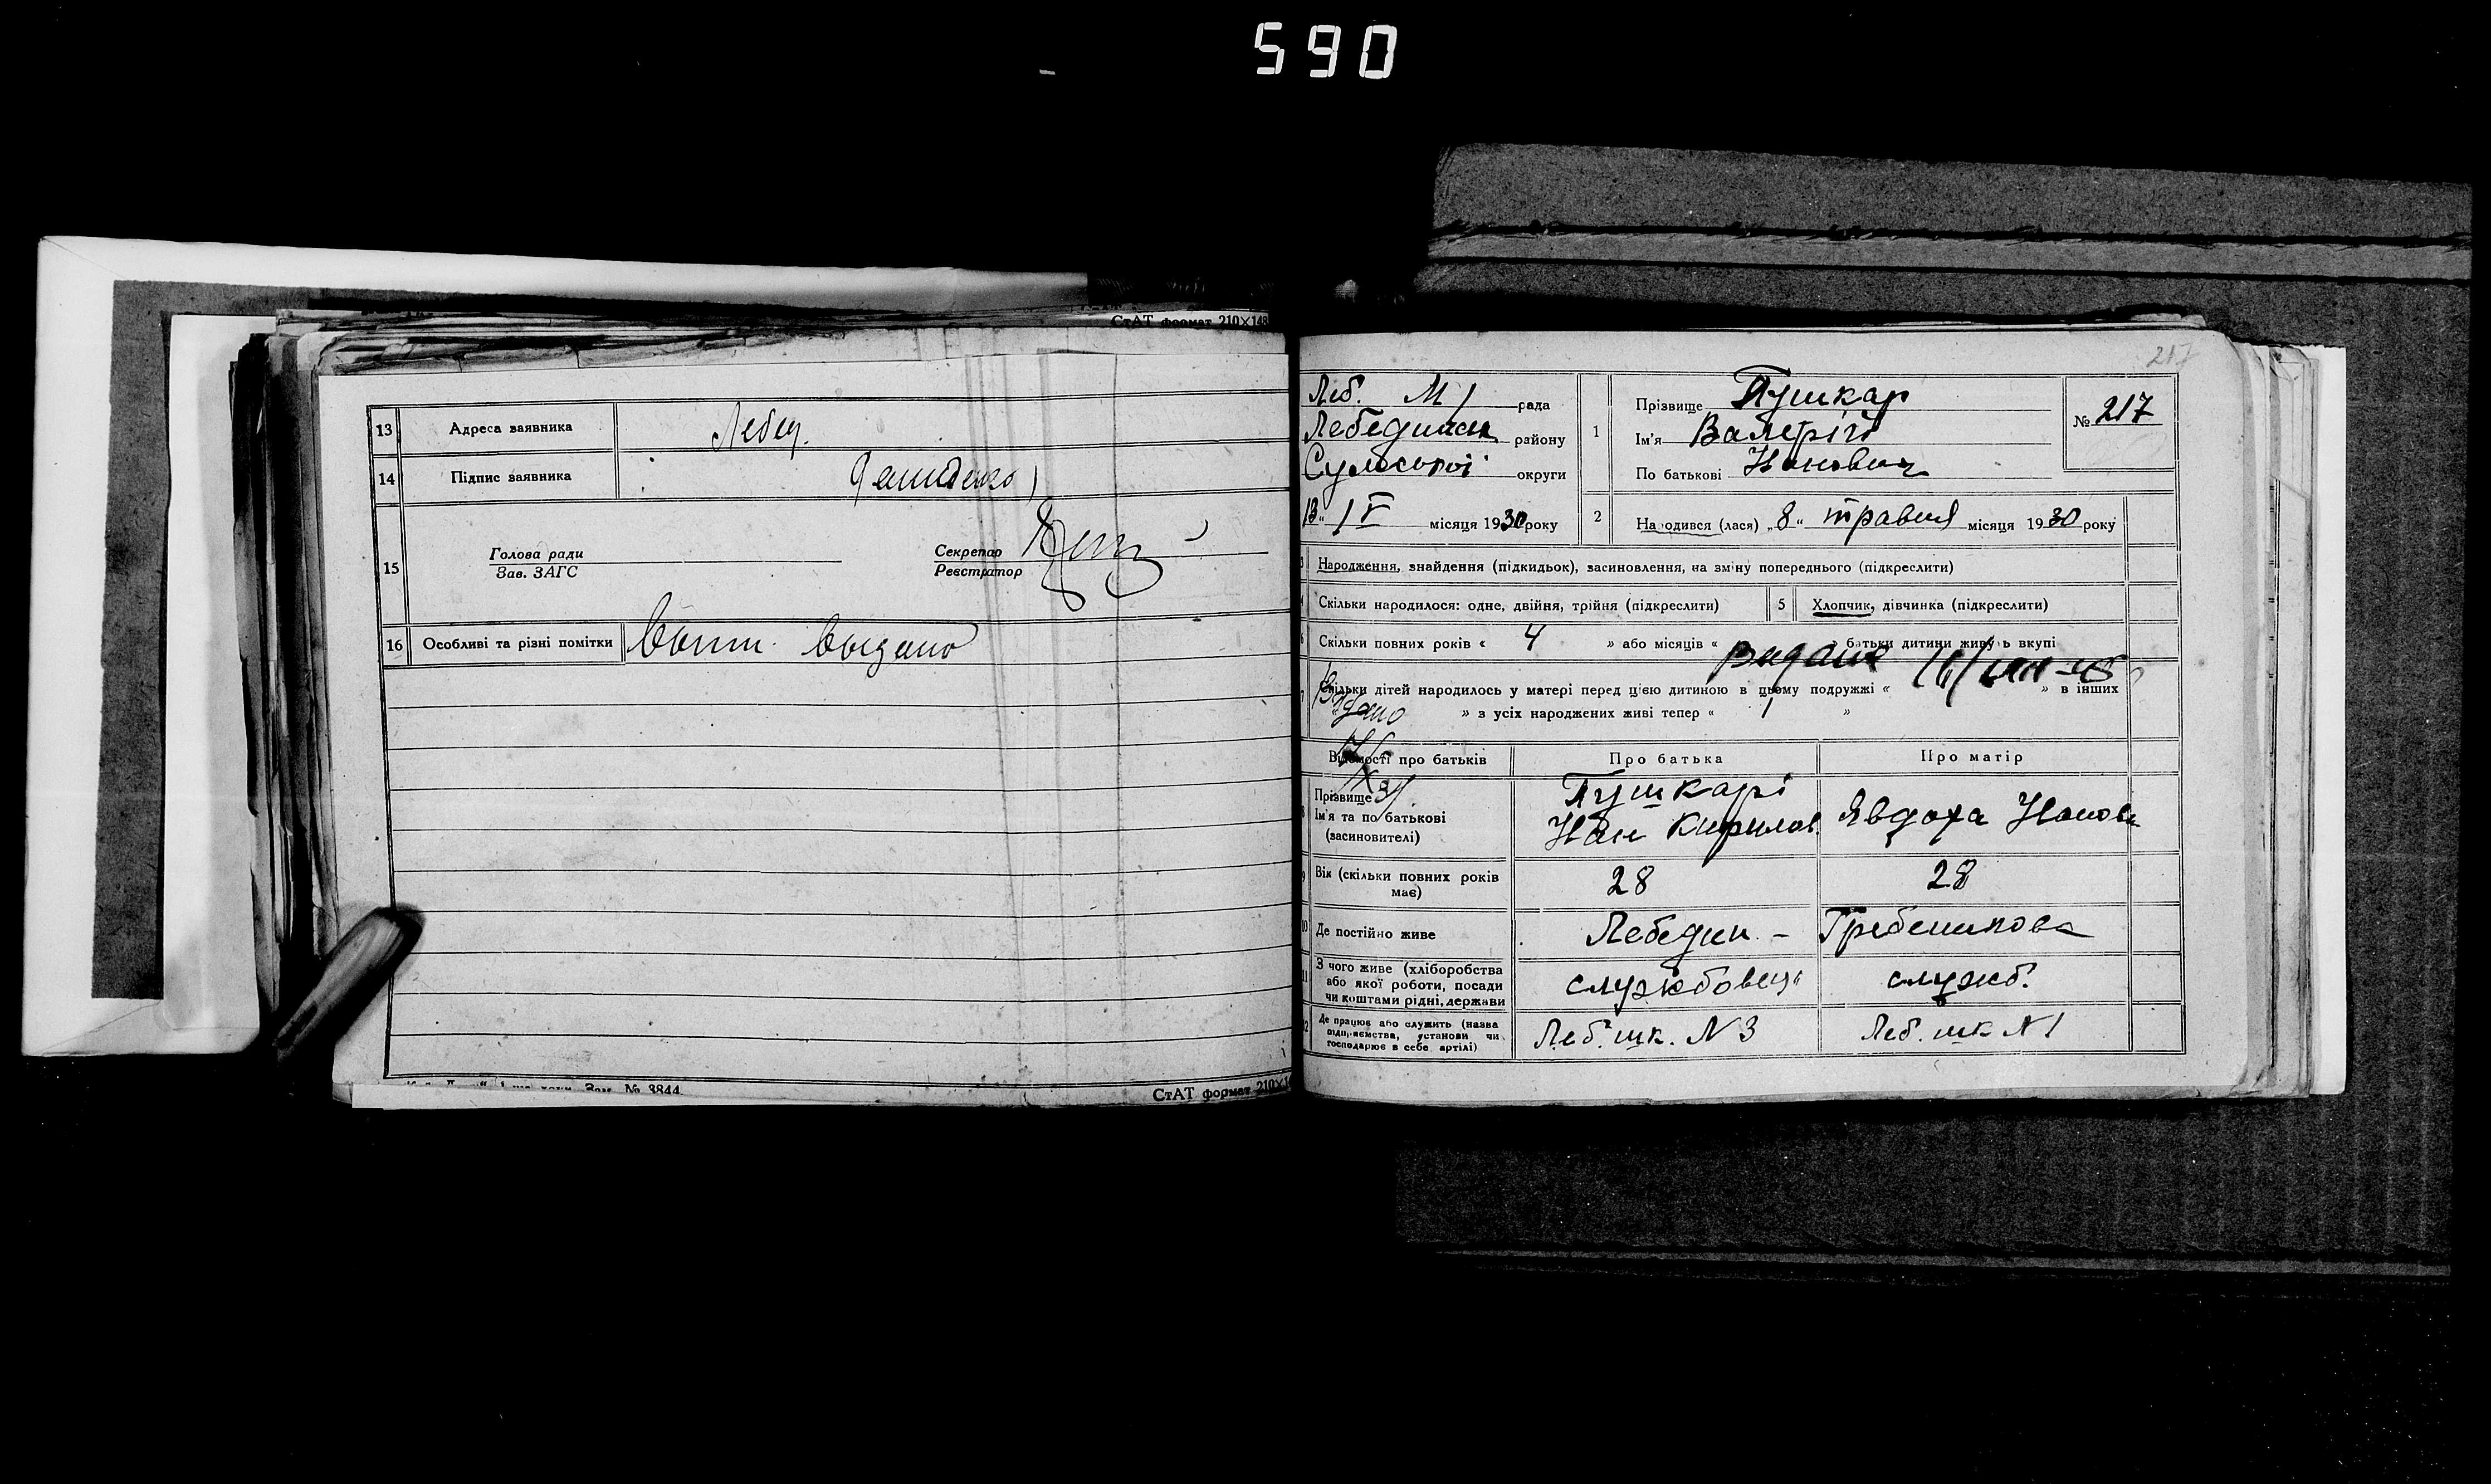 590
СтАТ формат 210×148
13 Адреса заявника Лебед.
14 Підпис заявника
15 Голова ради
Зав. ЗАГС
Секретар
Реєстратор
16 Особливі та різні помітки выдано
Зам. № 3844
СтАТ формат 210×1
217
Леб. М рада
Лебединськ району
Сумської округи
місяця 1930 року
1 Прізвище Пушкар
Ім'я Валерій
По батькові Іванович
№ 217
2 Народився (лася) „8“ травня місяця 1930 року
Народження, знайдення (підкидьок), засиновлення, на зміну попереднього (підкреслити)
Скільки народилося: одне, двійня, трійня (підкреслити)
5 Хлопчик, дівчинка (підкреслити)
6 Скільки повних років « 4 » або місяців « » батьки дитини живуть вкупі
видано
7 Скільки дітей народилось у матері перед цією дитиною в цьому подружжі « » в інших
« » з усіх народжених живі тепер « 1 »
Видано
Відомості про батьків Про батька Про матір
Прізвище
Ім'я та по батькові
(засиновителі)
Пушкарі
Іван Кирилов
Явдоха Іванов
9 Вік (скільки повних років
має)
28 28
10 Де постійно живе Лебедин –
11 З чого живе (хліборобства
або якої роботи, посади
чи коштами рідні, держави
службовець служб.
12 Де працює або служить (назва
підприємства, установи чи
господарює в себе артілі)
Леб. шк. N 3 Леб. шк N 1